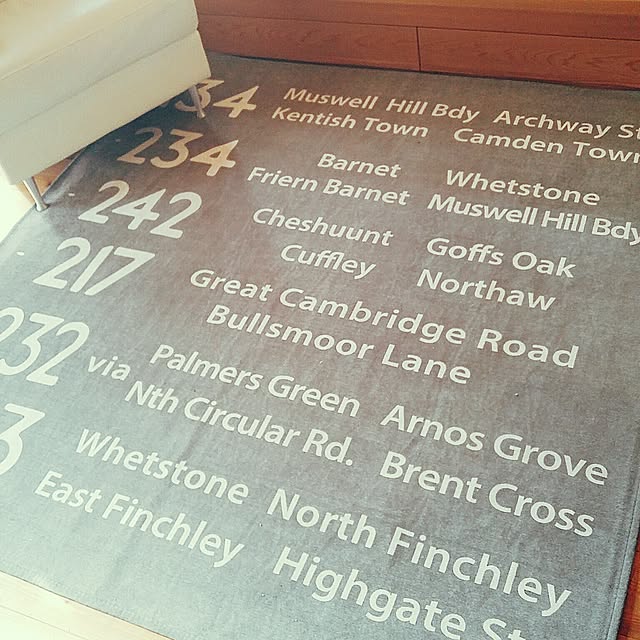 34 Muswell Hill Bdy Archway St
Kentish Town Camden Town
234 Barnet Whetstone
Friern Barnet Muswell Hill Bdy
242 Cheshuunt Goffs Oak
Cuffley Northaw
217 Great Cambridge Road
Bullsmoor Lane
232 via Palmers Green Arnos Grove
Nth Circular Rd. Brent Cross
3 Whetstone North Finchley
East Finchley Highgate St